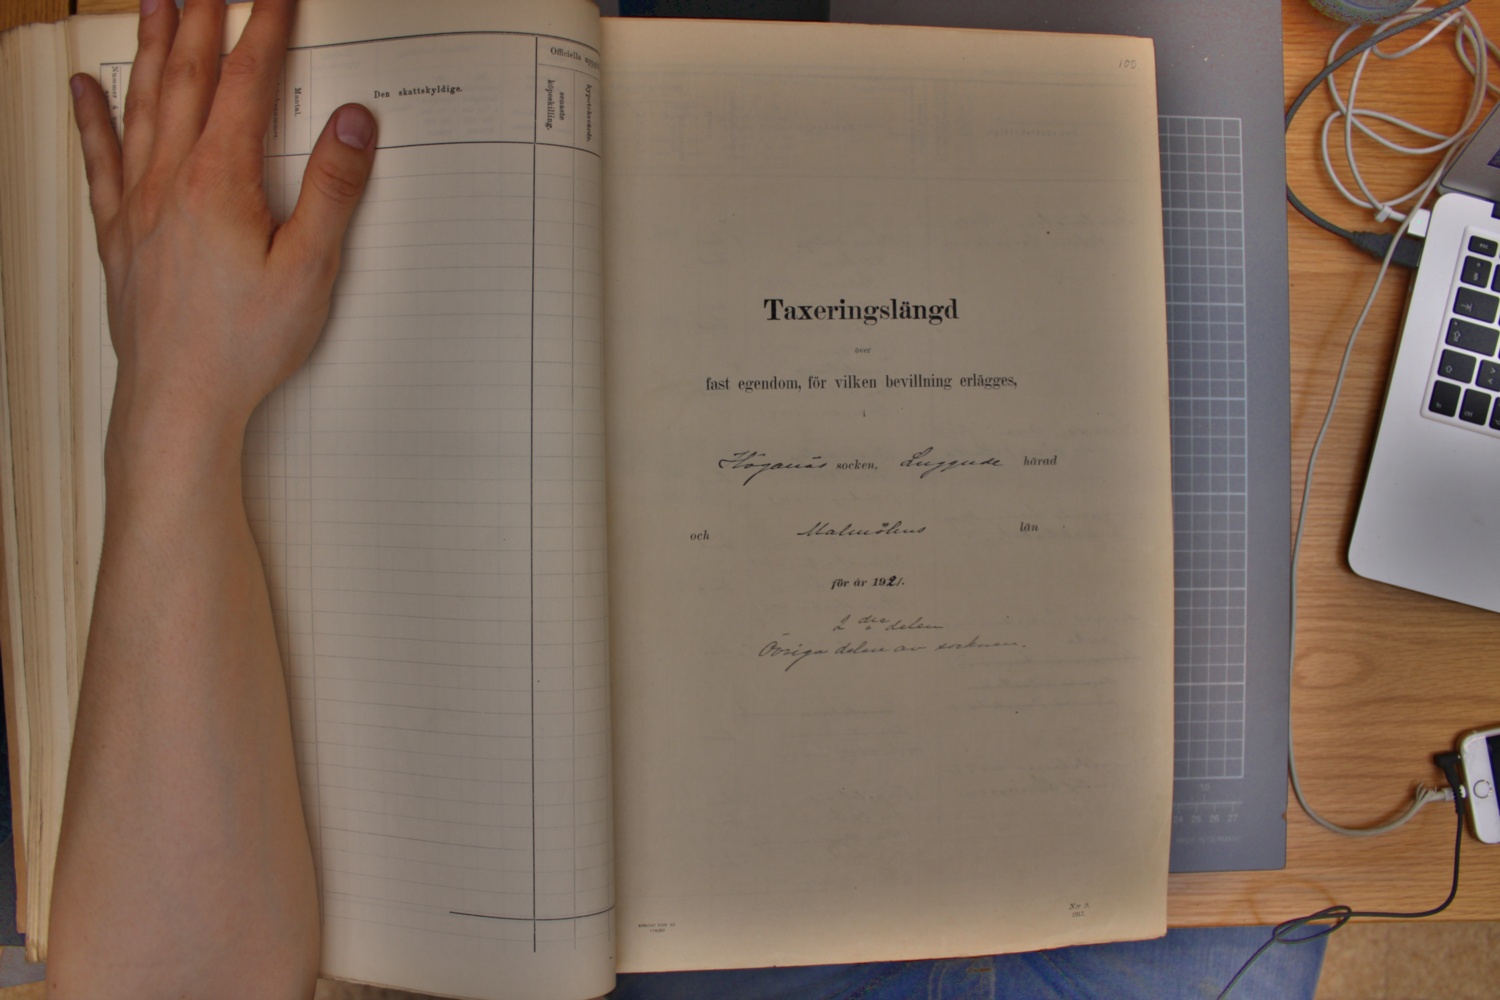 Mantal.
Den skattskyldige.
Officiella
senaste
köpeskilling.
100
Taxeringslängd
över
fast egendom, för vilken bevillning erlägges,
i
Höganäs socken, Luggude härad
och Malmöhus län
för år 1921.
2 dra delen
Övriga delen av socknen.
Nr 8.
24 25 26 27
10